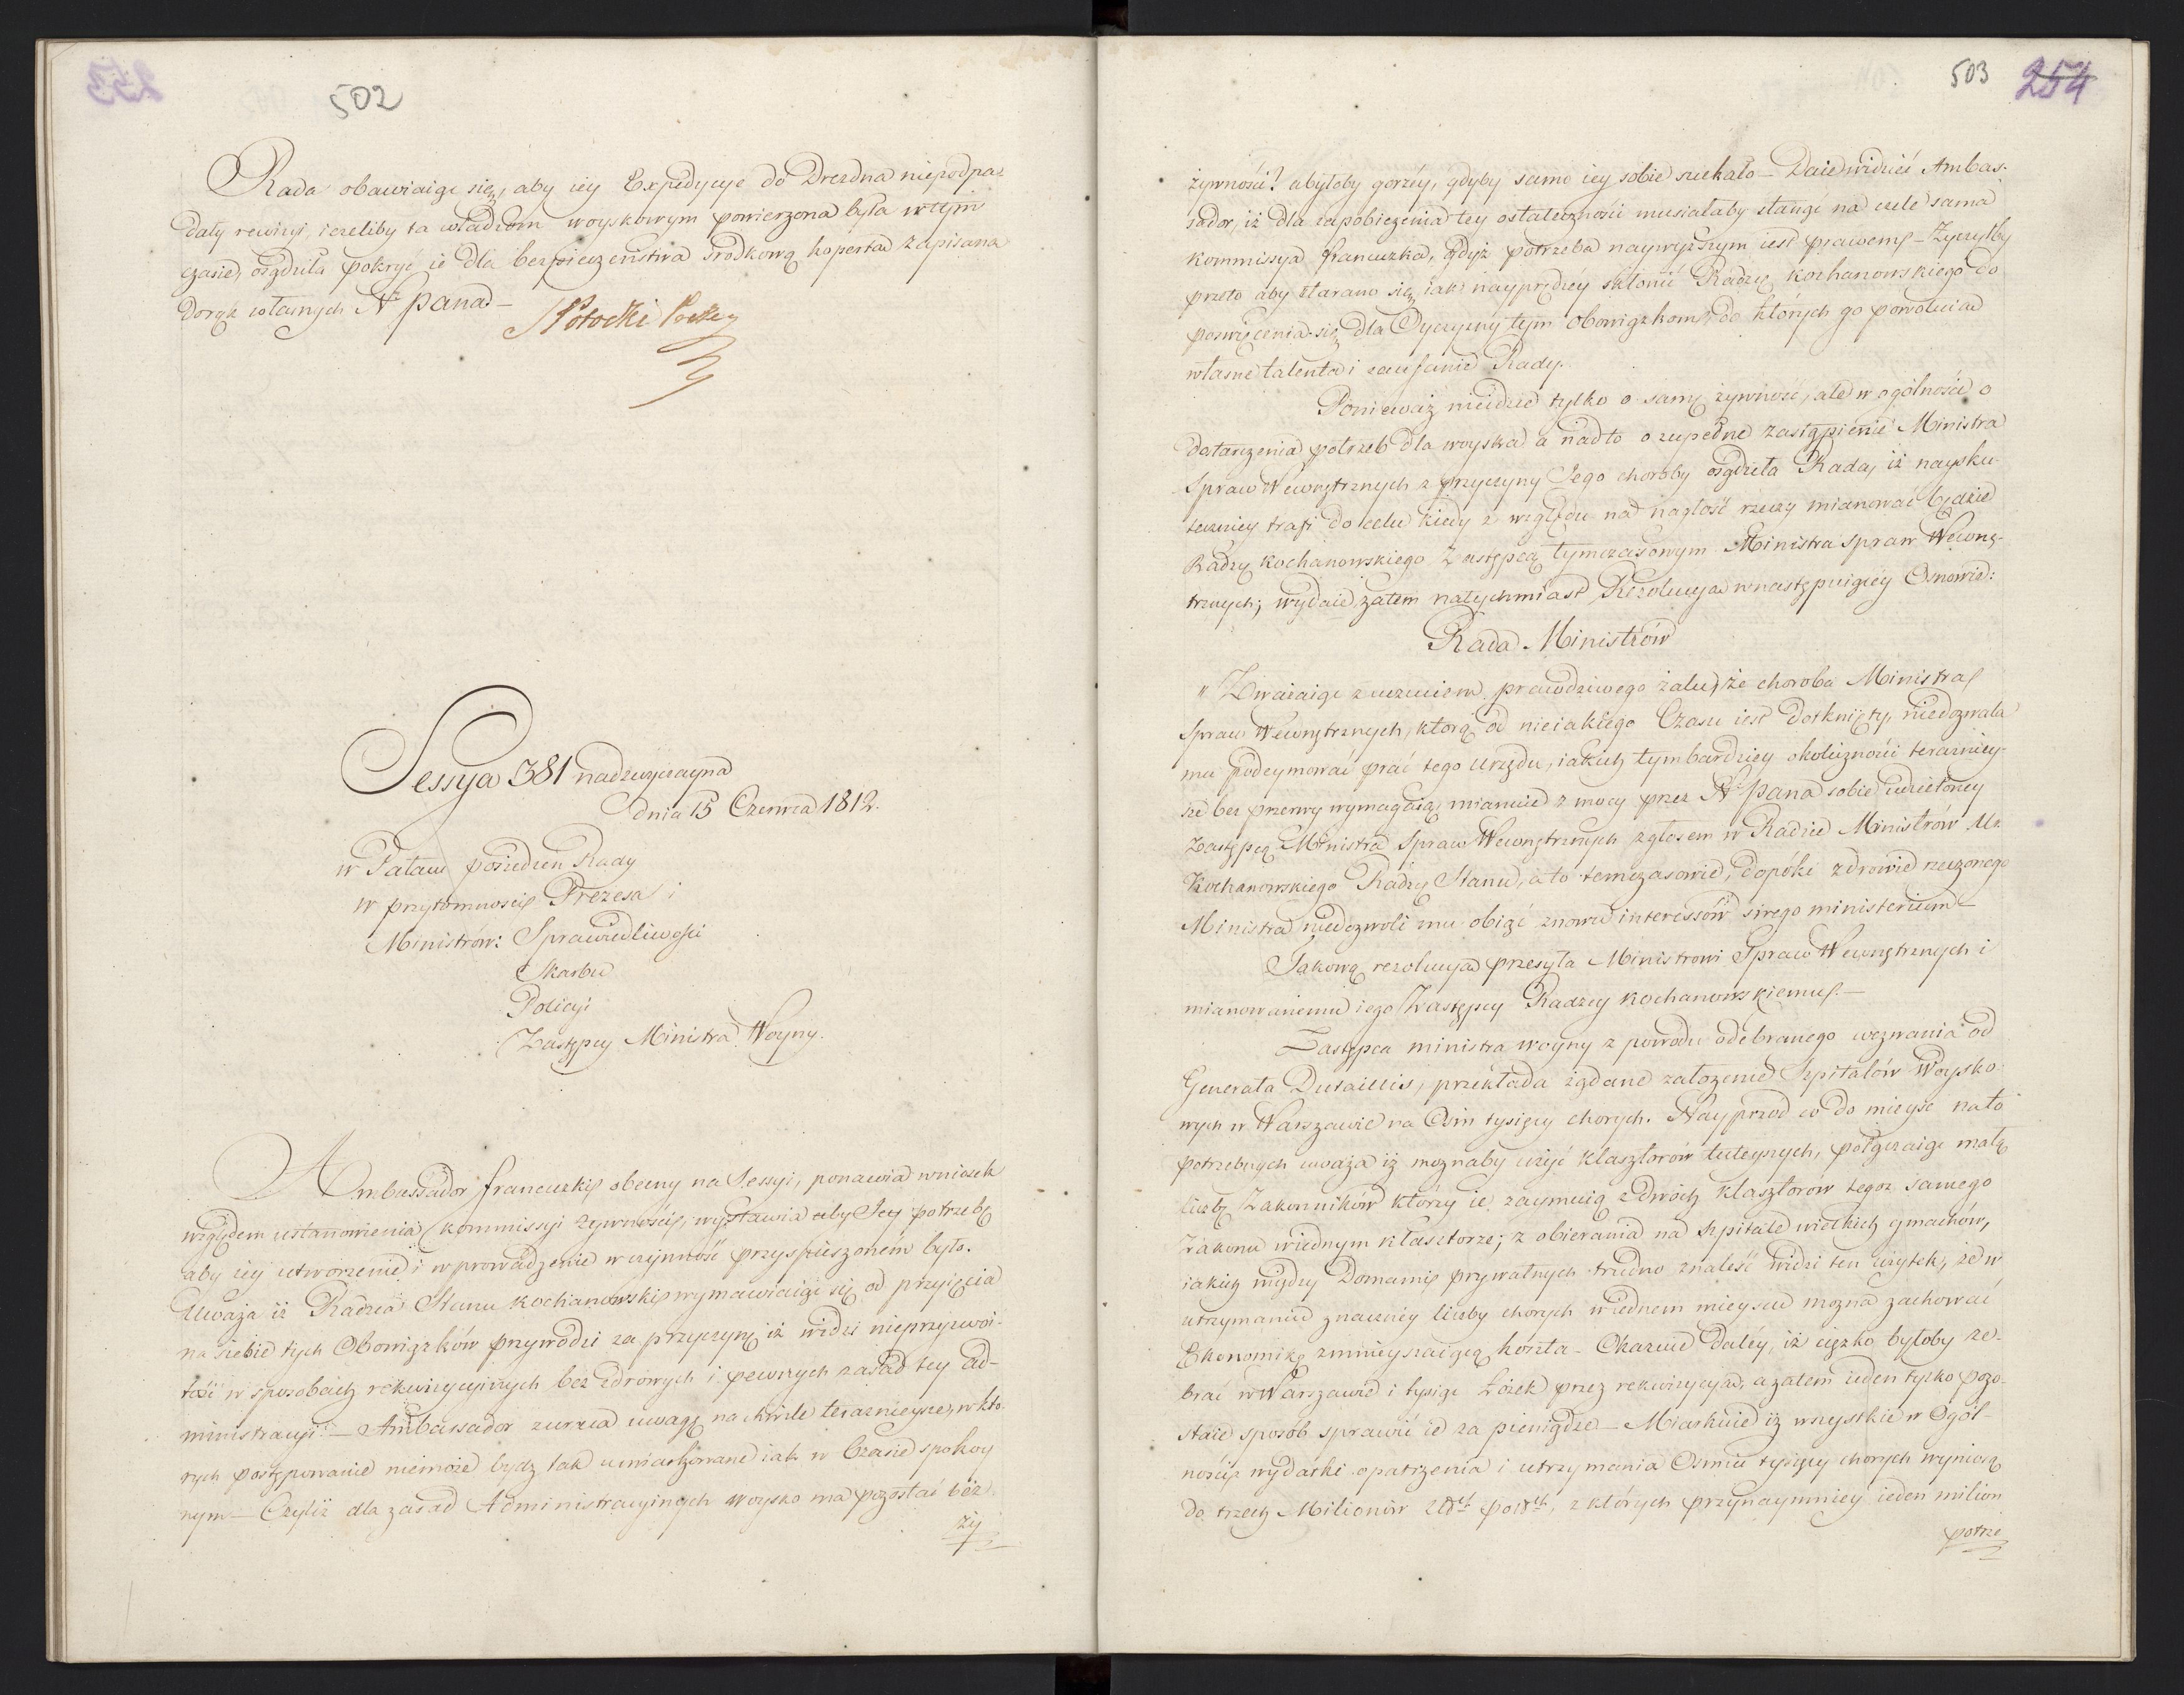 502
Rada obawiaiąc się, aby iey Expedycye do Drezdna niepodpa-
dały rewizyi, ieżeliby ta władzom woyskowym powierzona była w tym
czasie, osądziła pokryć ie dla bezpieczeństwa srodkową kopertą zapisaną
do rąk własnych N. Pana —
S Potocki Prezes
Sessya 381 nadzwyczayna
dnia 15 Czerwca 1812.
w Pałacu posiedzeń Rady
w przytomności Prezesa i
Ministrów: Sprawiedliwości
Skarbu
Policyi
Zastępcy Ministra Woyny.
Ambassador francuzki obecny na Sessyi, ponawia wniosek
względem ustanowienia kommissyi żywności, wystawia aby Jey potrzebę
aby iey utworzenie i wprowadzenie w czynność przyspieszonem było.
Uważa iż Radzca Stanu Kochanowski wymawiaiąc się od przyięcia
na siebie tych Obowiązków przywodzi za przyczynę iż widzi nieprzyzwoi-
tość w sposobach rekwizycyinych bez zdrowych i pewnych zasad tey ad-
ministracyi. — Ambassador zwraca uwagę na chwile teraznieysze, w któ-
rych postępowanie niemoże bydz tak umiarkowane iak w Czasie spokoy
nym — Czyliż dla zasad Administracyinych woysko ma pozostać bez
ży
503 254
żywności? a byłoby gorzéy, gdyby samo iey sobie szukało — Daie widzieć Ambas-
sador, iż dla zapobieżenia tey ostateczności musiałaby stanąć na czele sama
kommissya francuzka, gdyż potrzeba naywyższym iest prawem — Życzyłby
przeto aby starano się iak nayprędzéy skłonić Radzcę Kochanowskiego do
poswięcenia się dla Oyczyzny tym obowiązkom, do których go powołuią
własne talenta i zaufanie Rady.
Ponieważ nieidzie tylko o samę żywność, ale w ogólności o
dostarczenia potrzeb dla woyska a nadto o zupełne zastąpienie Ministra
Spraw Wewnętrznych z przyczyny Jego choroby osądziła Rada, iż naysku-
teczniey trafi do celu kiedy z względu na nagłość rzeczy mianować będzie
Radzcę Kochanowskiego Zastępcą tymczasowym Ministra Spraw Wewnę-
trznych; wydaie zatem natychmiast Rezolucyą w następuiącéy Osnowie:
Rada Ministrów
" Zważaiąc z uczuciem prawdziwego żalu, że choroba Ministra
Spraw Wewnętrznych, którą od nieiakiego Czasu iest dotknięty, niedozwala
mu podeymować prac tego urzędu, iakich tym bardziey okoliczności terazniey-
sze bez przerwy wymagaią, mianuie z mocy przez N. Pana sobie udzieloney
Zastępcą Ministra Spraw Wewnętrznych z głosem w Radzie Ministrów Ur.
Kochanowskiego Radzcę Stanu, a to temczasowie, dopóki zdrowie rzeczonego
Ministra niedozwoli mu obiąć znowu interessów swego ministerium —
Jakową rezolucyą przesyła Ministrowi Spraw Wewnętrznych i
mianowanemu iego Zastępcy Radzcy Kochanowskiemu. —
Zastępca ministra woyny z powodu odebranego wezwania od
Generała Dutaillis, przekłada żądane założenie Szpitalów Woysko-
wych w Warszawie na Osm tysięcy chorych. Nayprzód co do mieysc na to
potrzebnych uważa iż moznaby użyć klasztorów tuteyszych, połączaiąc małą
liczbę Zakonników którzy ie zaymuią z dwóch klasztorów tegoż samego
Zakonu w iednym klasztorze; z obierania na Szpitale wielkich gmachów,
iakich między Domami prywatnych trudno znaleść widzi ten użytek, że w
utrzymaniu znaczney liczby chorych w iednem mieyscu można zachować
Ekonomikę zmnieyszaiącą koszta — Okazuie daléy, iż ciężko byłoby ze-
brać w Warszawie i tysiąc Łóżek przez rekwizycyą, a zatem ieden tylko pozo-
staie sposób sprawić ie za pieniądze — Miarkuie iż wszystkie w Ogól-
ności wydatki opatrzenia i utrzymania Osmiu tysięcy chorych wyniosą
do trzech Milionów Złch polch, z których przynaymniey ieden milion
potrze